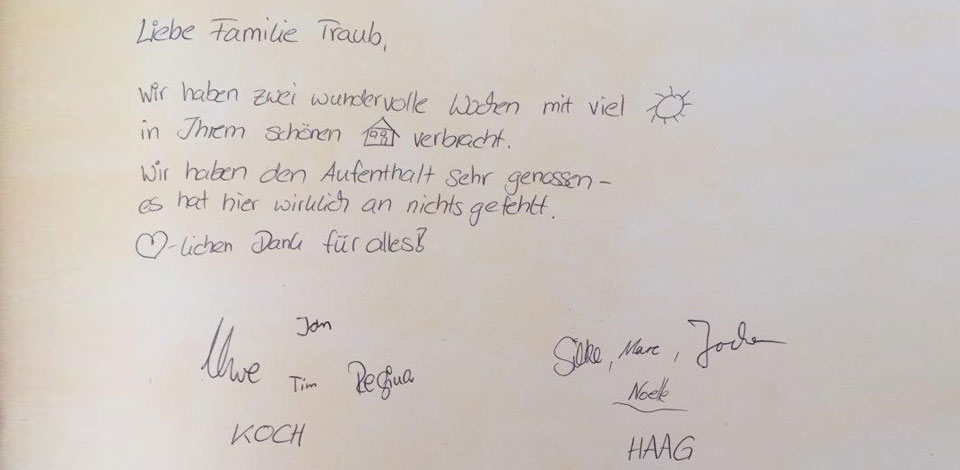 Liebe Familie Traub,
wir haben zwei wundervolle Wochen mit viel
in Ihrem schönen verbracht.
Wir haben den Aufenthalt sehr genossen –
es hat hier wirklich an nichts gefehlt.
-lichen Dank für alles!
Uwe Jan
Tim Regina
KOCH
Silke, Marc, Jochen
Noelle
HAAG